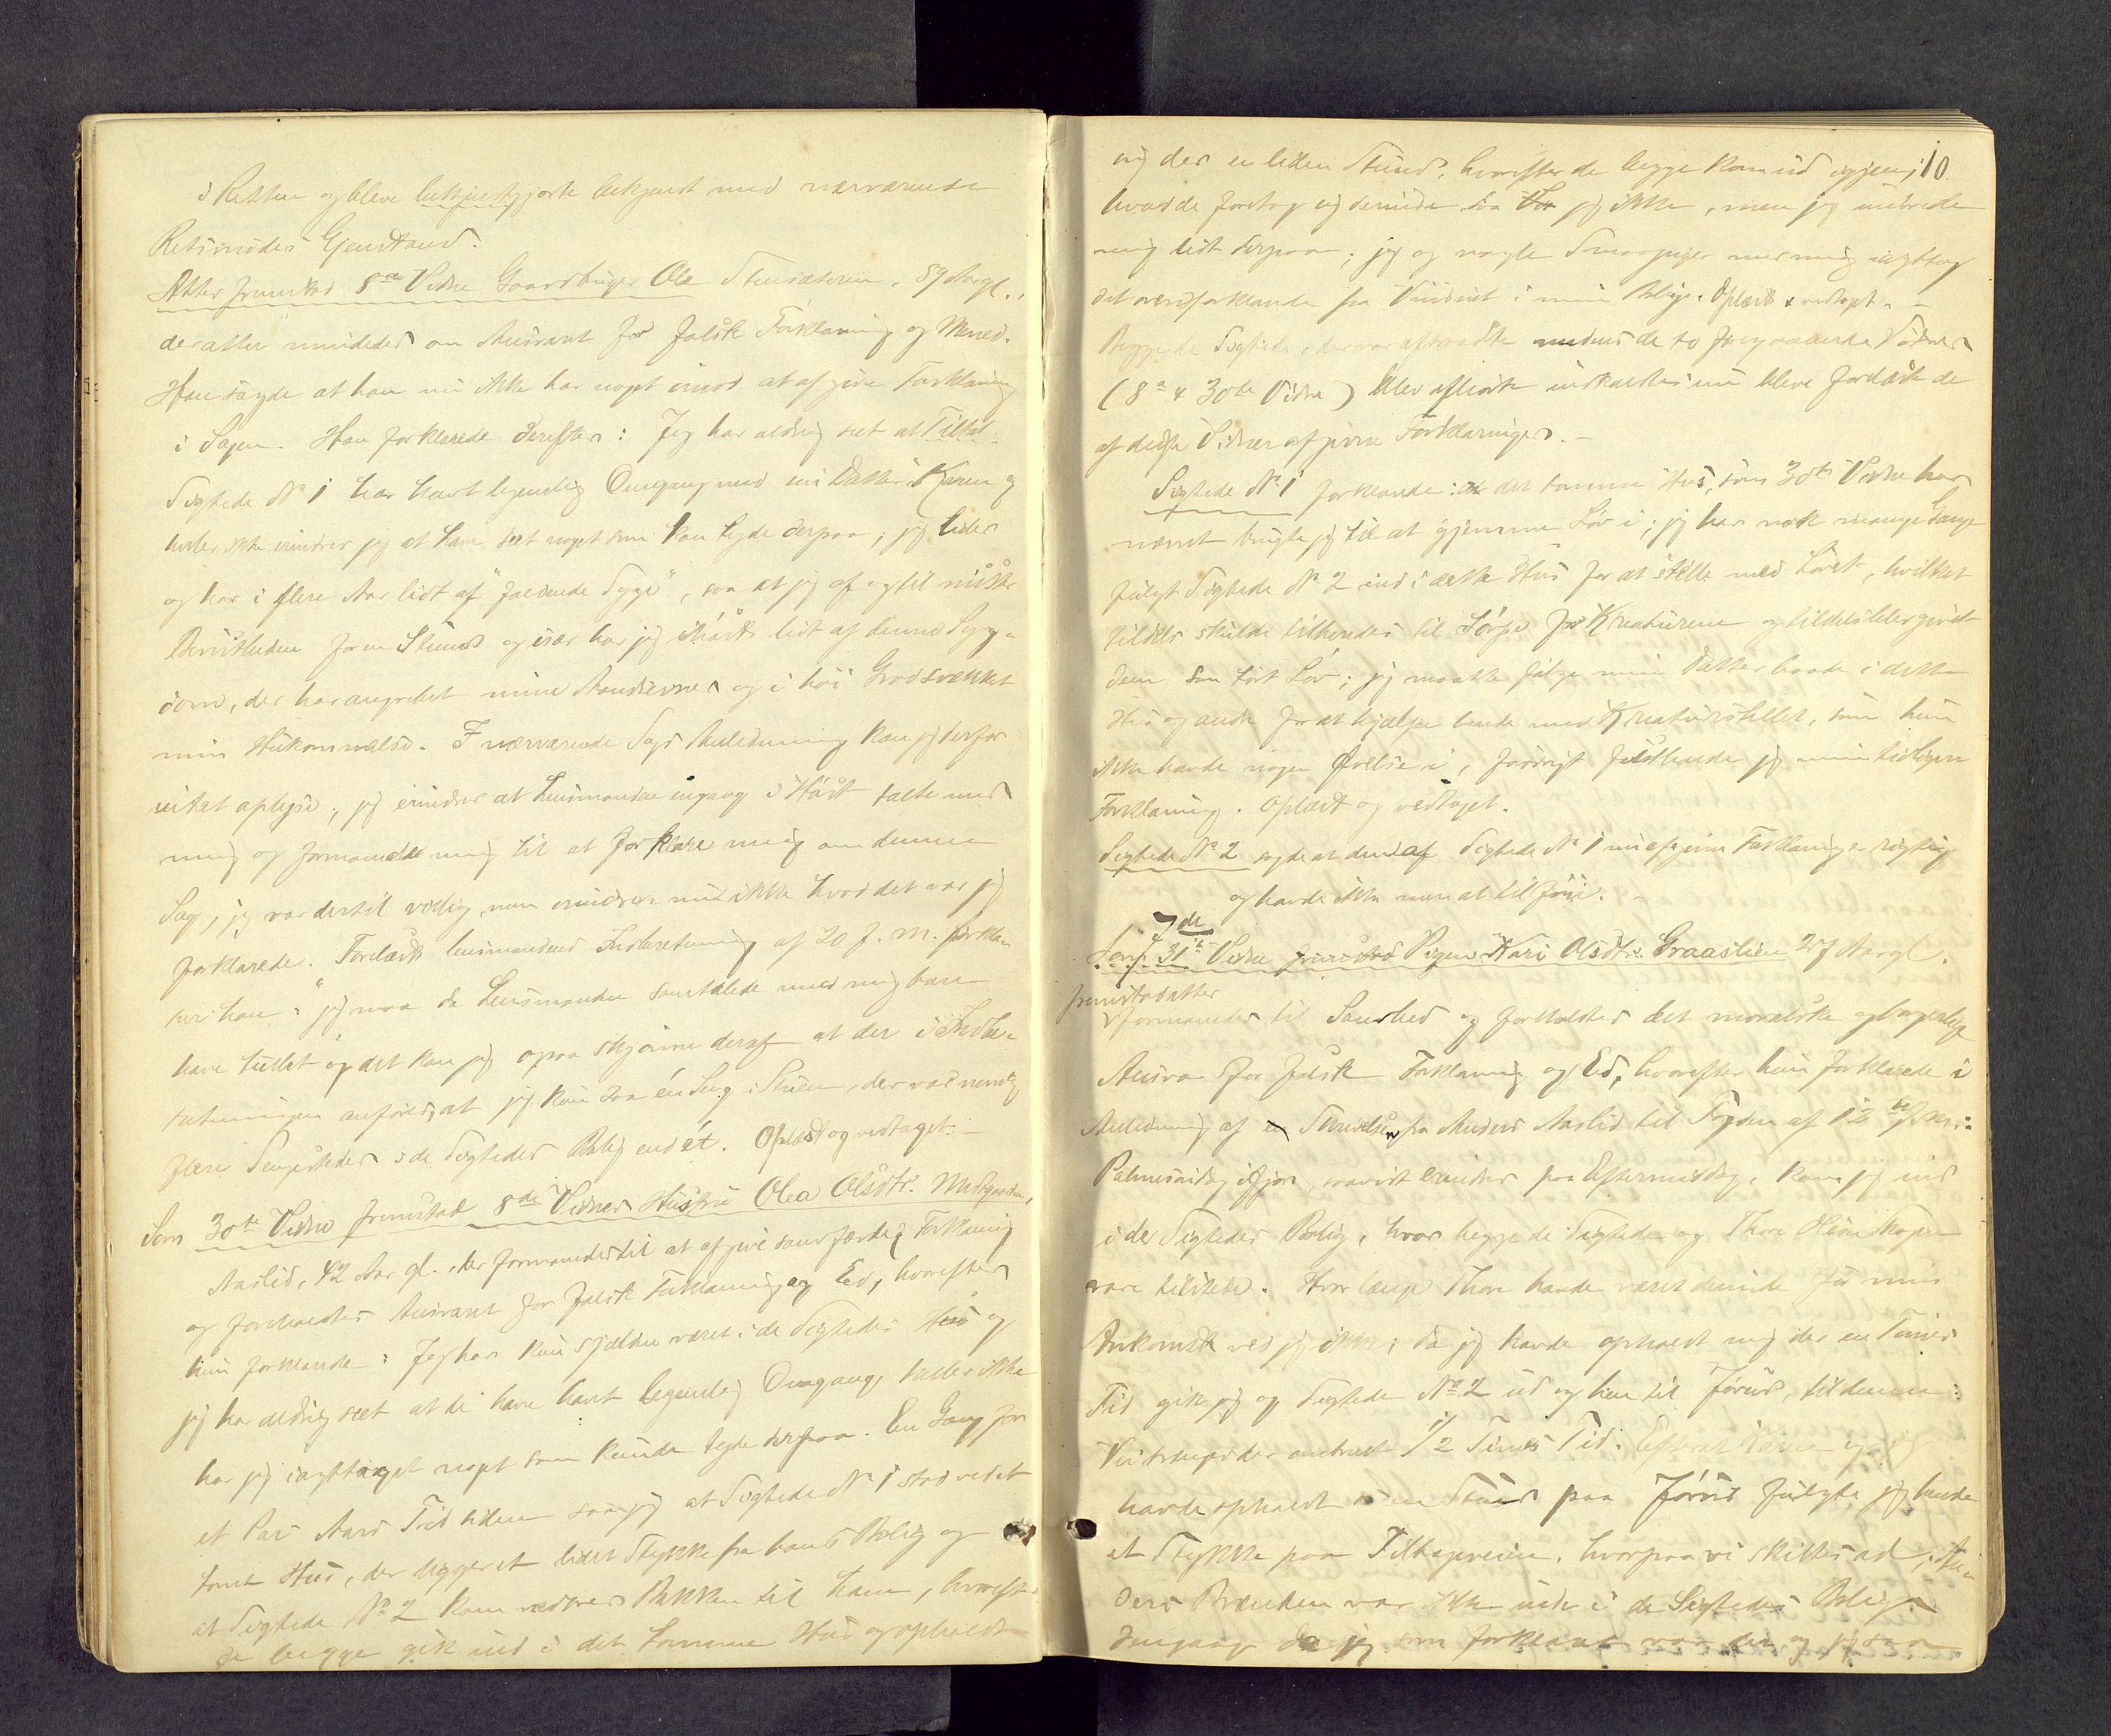 i Retten og bleve bekjendtgjorte bekjendt med nærværende
Retsmødes Gjenstand.
Atter fremstod 8de Vidne Gaardbruger Ole 59 Aargl.,
der atter mindedes om Ansvaret for falsk Forklaring og Mened.
Han sagde at han nu ikke har noget imod at afgive Forklaring
i Sagen. Han forklarede derefter: Jeg har aldrig seet at Tiltal
Sigtede No 1 har havt legemlig Omgang med sin Datter Karen og
heller ikke erindrer jeg at have seet noget som kan tyde derpaa; jeg lider
og har i flere Aar lidt af "faldende Syge", saa at jeg af og til mister
Bevistheden for en Stund og især har jeg ihøst lidt af denne Syg-
dom, der har angrebet mine Aandsevner og i høi Grad svækket
min Hukommelse. I nærværende Sags Anledning kan jeg derfor
intet oplyse; jeg erindrer at Lensmanden engang i Høst talte med
mig og formanede mig til at forklare mig om denne
Sag, jeg var dertil villig, men erindrer nu ikke hvad det var jeg
forklarede. Forelæst Lensmandens Indberetning af 20 f. M. forkla-
rer han: "jeg maa da Lensmanden samtalede med mig bare
have tullet" og det kan jeg ogsaa skjønne deraf at der i Indbe-
retningen anføres, at jeg kun saa én Seng i Stuen, der var nemlig
flere Sengesteder i de Sigtedes Bolig end ét. Oplæst og vedtaget. –
Som 30te Vidne fremstod 8de Vidnes Hustru Olea Olsdtr.
Aaslid, 42 Aar gl. der formanedes til at afgive sandfærdig Forklaring
og foreholdtes Ansvaret for falsk Forklaring og Ed, hvorefter
hun forklarede: Jeg har kun sjelden været i de Sigtedes Hus og
jeg har aldrig seet at de have havt legemlig Omgang, heller ikke
har jeg iagttaget noget som kunde tyde derpaa. En Gang for
et Par Aars Tid siden saa jeg at Sigtede No 1 stod ved et
tomt Hus, der ligger et lidet Stykke fra hans Bolig og
at Sigtede No 2 kom nedover Bakken til ham, hvorefter
de begge gik ind i det tomme Hus og opholdt
10.
sig der en liden Stund, hvorefter de begge kom ud igjen;
hvad de foretog sig derinde saa jeg ikke, men jeg undrede
mig lidt derpaa; jeg og nogle Smaapiger nær mig iagttog
det ovenforklarede fra Vinduet i min Bolig. Oplæst & vedtaget. –
Begge de Sigtede, der var aftraadte medens de to foregaaende Vidner
(8de & 30te Vidne) blev afhørte indkaldtes nu bleve forelæst de
af disse Vidner afgivne Forklaringer. –
Sigtede No 1 forklarede: det tomme Hus, som 30te Vidne har
nævnt brugte jeg til at gjemme Løv i; jeg har nok mange Gange
fulgt Sigtede No 2 ind i dette Hus for at stelle med Løvet, hvilket
tildels skulde tilberedes til Sørpe for Kreaturene og tildels blev givet
dem som tørt Løv; jeg maatte følge min Datter baade i dette
Hus og andre for at hjælpe hende med Kreaturstellet, som hun
ikke havde nogen Øvelse i, forøvrigt fastholder jeg min tidligere
Forklaring. Oplæst og vedtaget.
Sigtede No 2 sagde at den af Sigtede No 1 nu afgivne Forklaring er rigtig
og havde ikke mere at tilføie. –
7de
Som 31te Vidne fremstod Pigen Kari Olsdtr. Graaslien 27 Aargl.
fremstod atter
formanedes til Sandhed og foreholdtes det moralske og borgerlige
Ansvar for falsk Forklaring og Ed, hvorefter hun forklarede i
Anledning af en Skrivelse fra Anders Aaslid til Fogden af 12te f. M.:
Palmesøndag ifjor, saavidt erindres paa Eftermiddag, kom jeg ind
i de Sigtedes Bolig, hvor begge de Sigtede og Thore
vare tilstede. Hvor længe Thore havde været derinde før min
Ankomst ved jeg ikke; da jeg havde opholdt mig der en Times
Tid gik jeg og Sigtede No 2 ud og hen til Jørud,
Vi brugte der omtrent 1/2 Times Tid. Efterat Karen og jeg
havde opholdt os en Stund paa Jørud fulgte jeg hende
et Stykke paa Tilbageveien, hvorpaa vi skiltes ad; An-
ders Brænden var ikke inde i de Sigtedes Bolig
dengang da jeg som forklaret var der og jeg saa